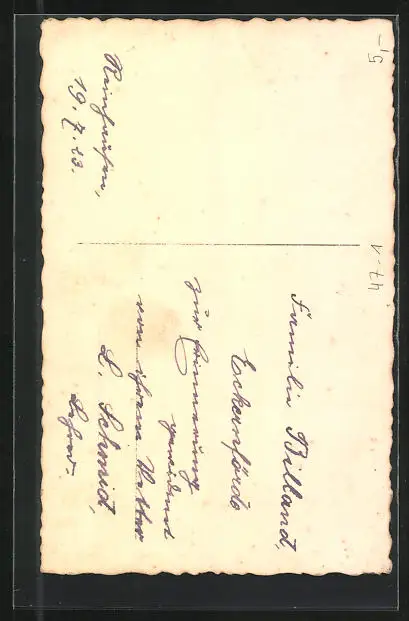 Reinhausen,
19. 7. 23.
Familie Billand,
Eckernförde
zur Erinnerung
gewidmet
von ihrem Vetter
L. Schmid,
Lehrer.
5,-